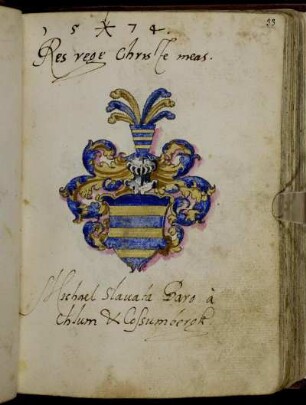 33
1 5 7 4 .
Res rege Christe meas .
Michael Slavata Baro à
Chlum & Cossumbergk